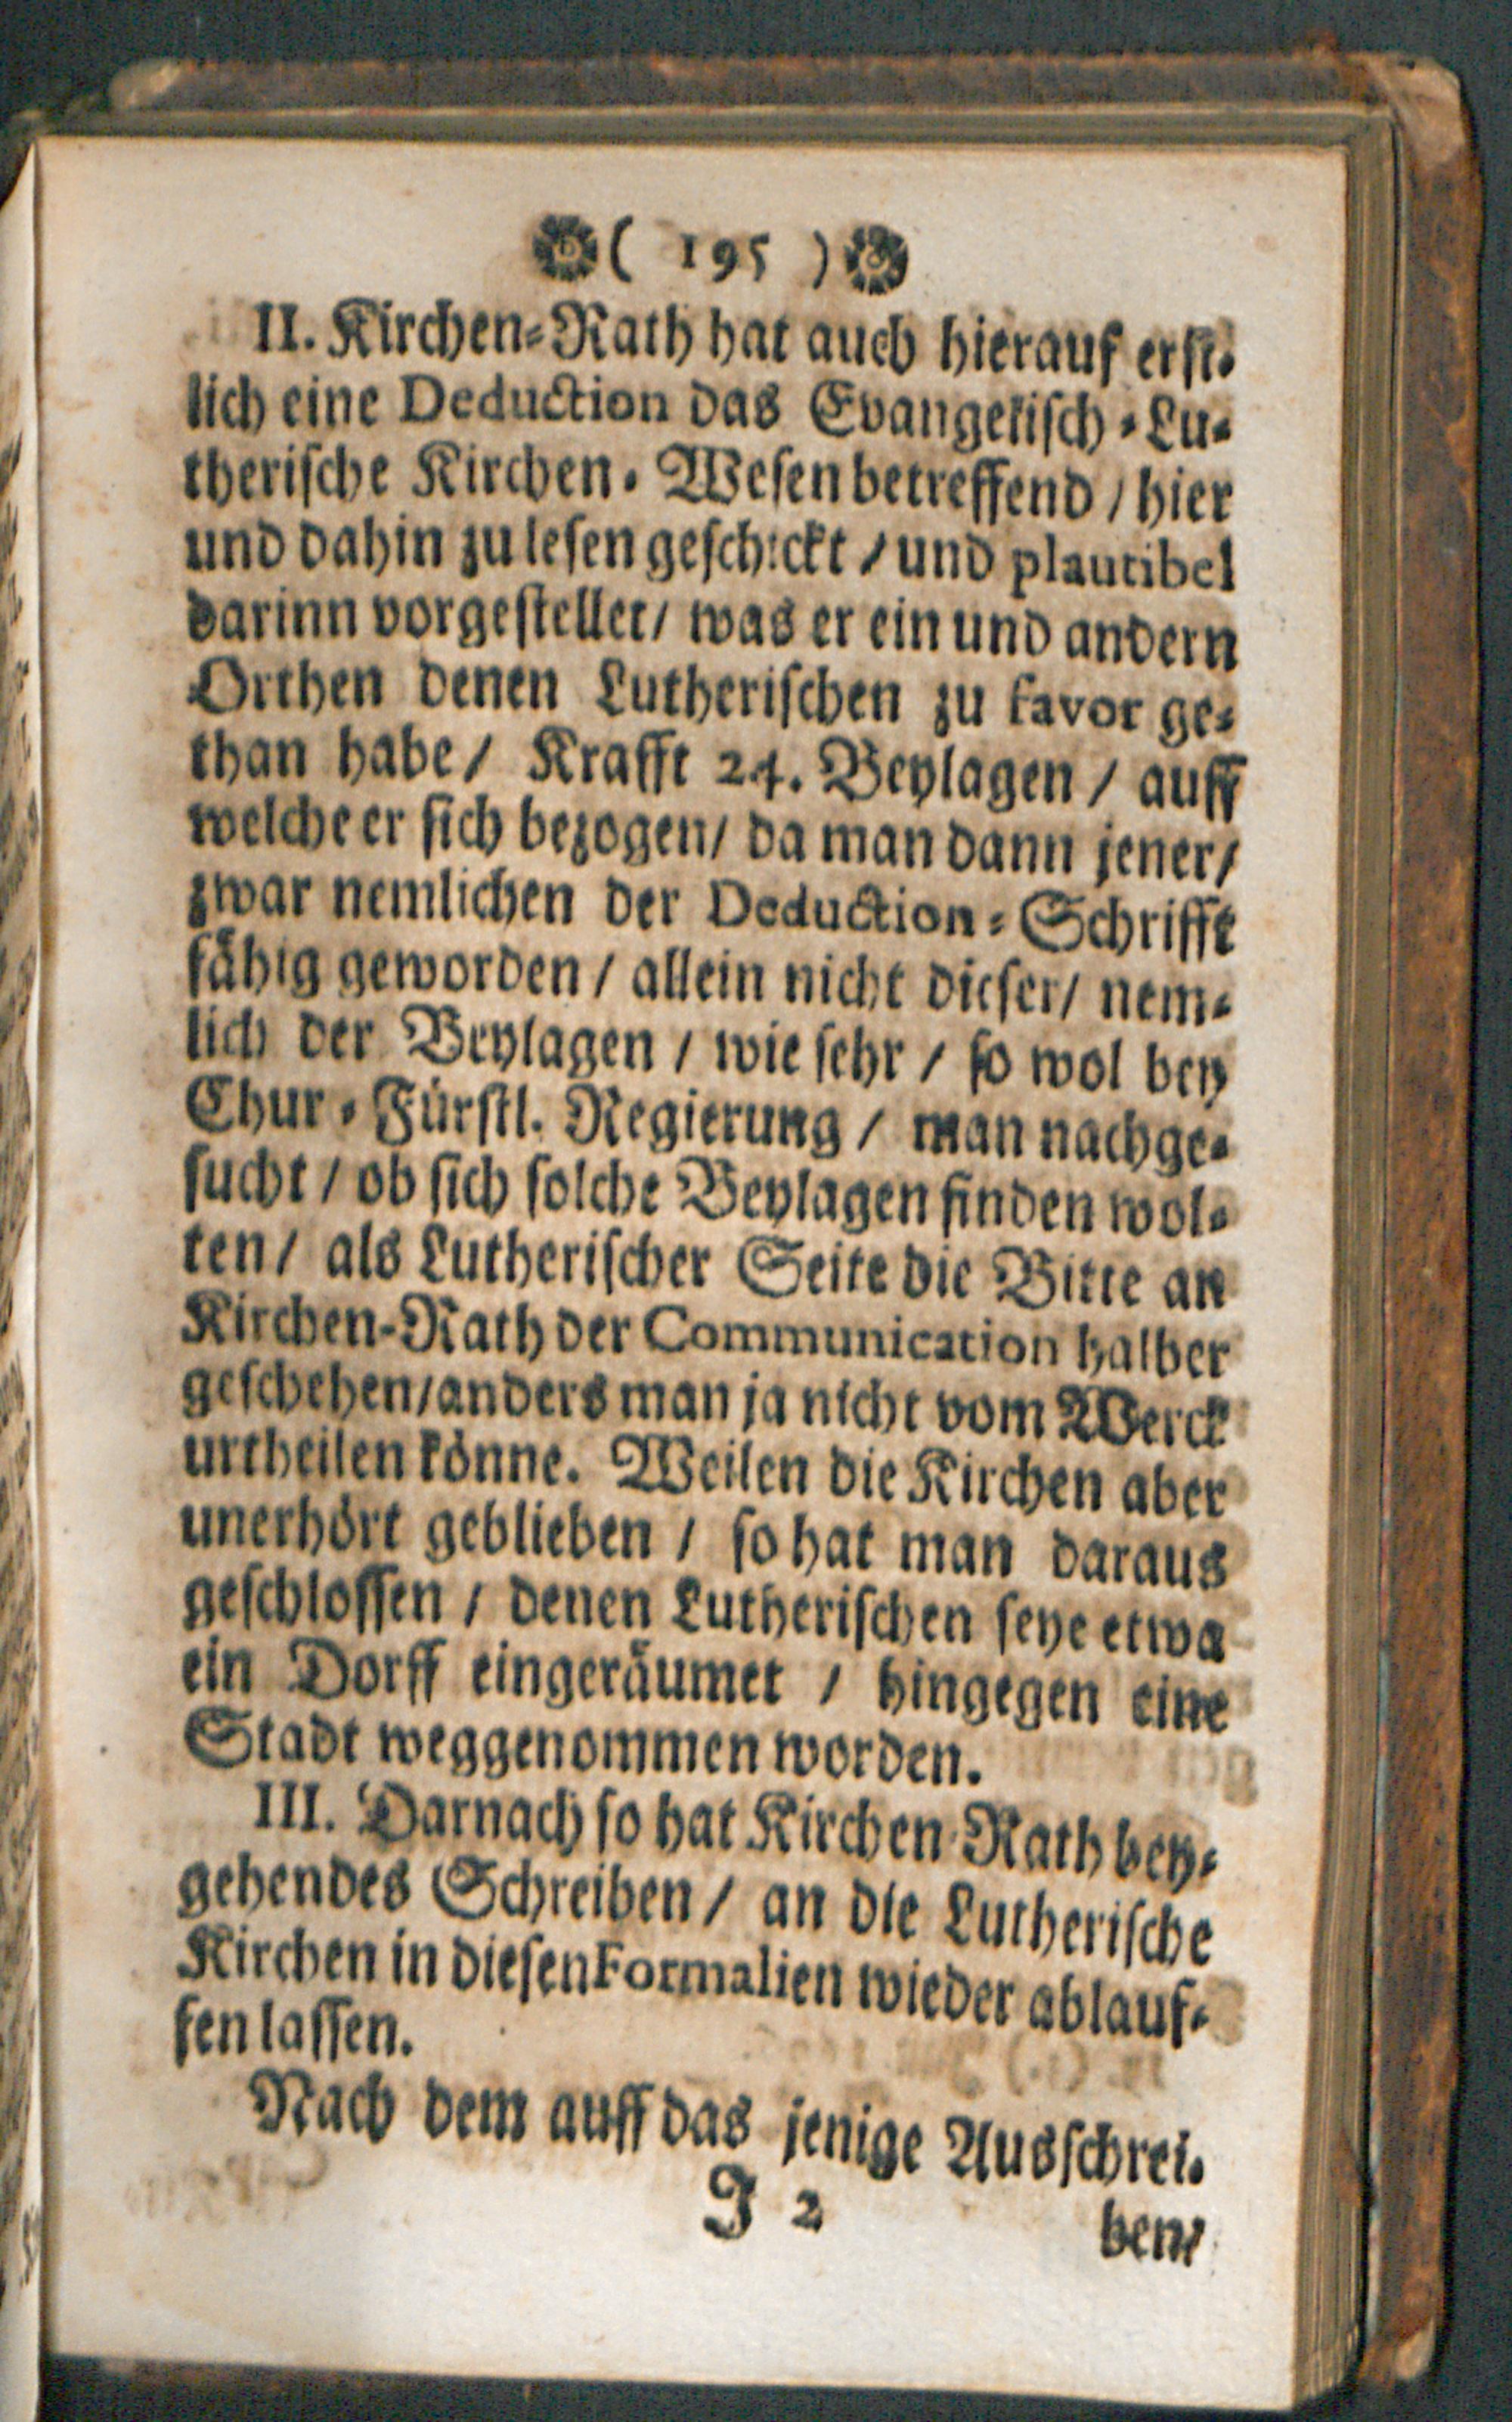 ( 195 )
II. Kirchen-Rath hat auch hierauf erst-
lich eine Deduction das Evangelisch-Lu-
therische Kirchen-Wesen betreffend / hier
und dahin zu lesen geschickt / und plausibel
darinn vorgestellet / was er ein und andern
Orthen denen Lutherischen zu favor ge-
than habe / Krafft 24. Beylagen / auff
welche er sich bezogen / da man dann jener /
zwar nemlichen der Deduction-Schrifft
fähig geworden / allein nicht dieser / nem-
lich der Beylagen / wie sehr / so wol bey
Chur-Fürstl. Regierung / man nachge-
sucht / ob sich solche Beylagen finden wol-
ten / als Lutherischer Seite die Bitte an
Kirchen-Rath der Communication halber
geschehen / anders man ja nicht vom Werck
urtheilen könne. Weilen die Kirchen aber
unerhört geblieben / so hat man daraus
geschlossen / denen Lutherischen seye etwa
ein Dorff eingeräumet / hingegen eine
Stadt weggenommen worden.
III. Darnach so hat Kirchen-Rath bey-
gehendes Schreiben / an die Lutherische
Kirchen in diesen Formalien wieder ablauf-
fen lassen.
Nach dem auff das jenige Ausschrei-
J 2
ben /